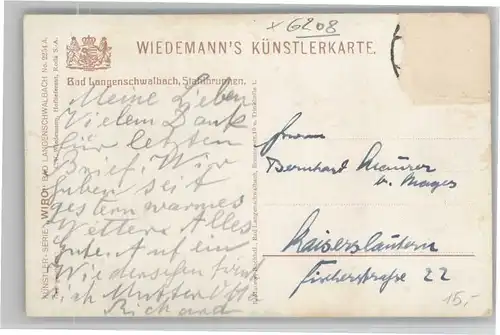 x 6208
WIEDEMANN'S KÜNSTLERKARTE.
Bad Langenschwalbach, Stahlbrunnen.
Meine Lieben
Vielem Dank
für letzten
Brief. Wir
haben seit
gestern warmes
Wetter. Alles
Gute. Auf ein
Wiedersehen freut
sich Mutter
Richard
KÜNSTLER-SERIE „WIRO“ BAD LANGENSCHWALBACH No. 2254 A.
Herrn
Bernhard Maurer
Kaiserslautern
Fischerstraße 22
15,-